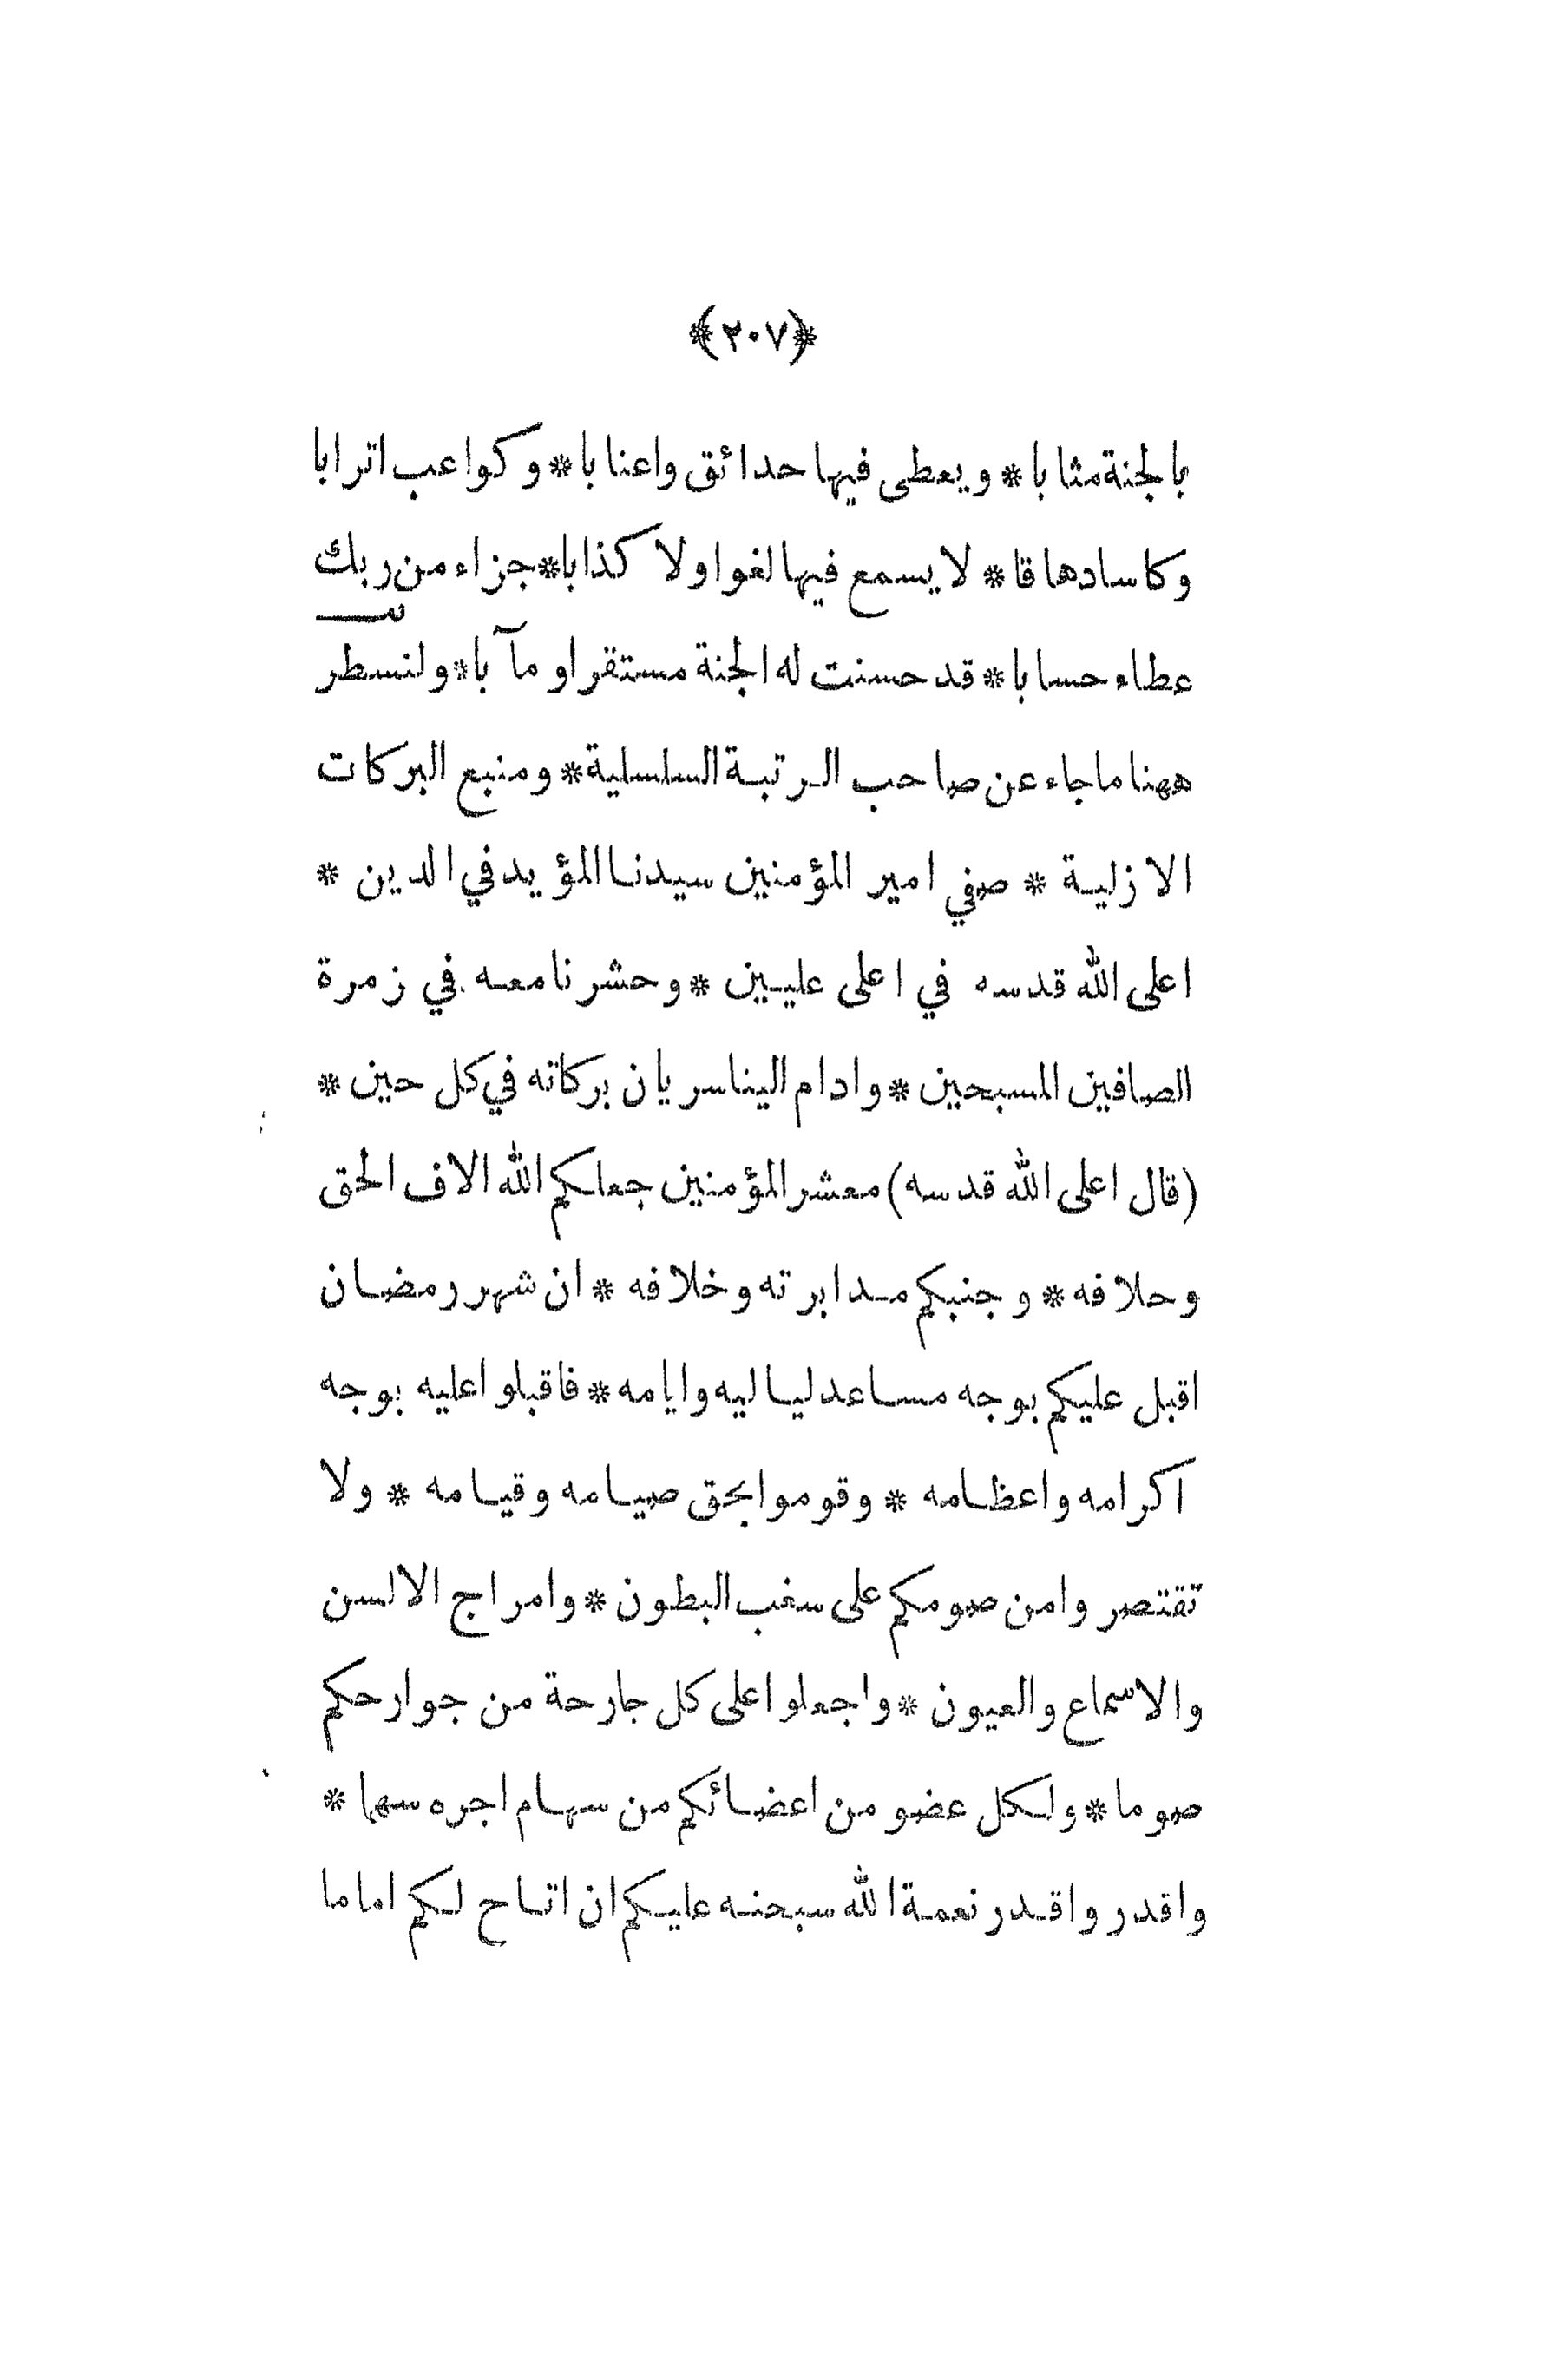 ﴿٢٠٧﴾
بالجنة مثابا * ويعطى فيها حدائق واعنابا * وكواعب اترابا
وكاسا دهاقا * لا يسمع فيها لغوا ولا كذابا * جزاء من ربك
عطاء حسابا * قد حسنت له الجنة مستقرا ومآبا * ولنسطر
ههنا ما جاء عن صاحب الرتبة السلسلية * ومنبع البركات
الازلية * صفي امير المؤمنين سيدنا المؤيد في الدين *
اعلى الله قدسه في اعلى عليين * وحشرنا معه في زمرة
الصافين المسبحين * وادام الينا سريان بركاته في كل حين *
(قال اعلى الله قدسه) معشر المؤمنين جعلكم الله الاف الحق
وحلافه * وجنبكم مدابرته وخلافه * ان شهر رمضان
اقبل عليكم بوجه مساعد لياليه وايامه * فاقبلوا عليه بوجه
اكرامه واعظامه * وقوموا بحق صيامه وقيامه * ولا
تقتصروا من صومكم على سغب البطون * وامراج الالسن
والاسماع والعيون * واجعلوا على كل جارحة من جوارحكم
صوما * ولكل عضو من اعضائكم من سهام اجره سهما *
واقدروا قدر نعمة الله سبحنه عليكم ان اتاح لكم اماما